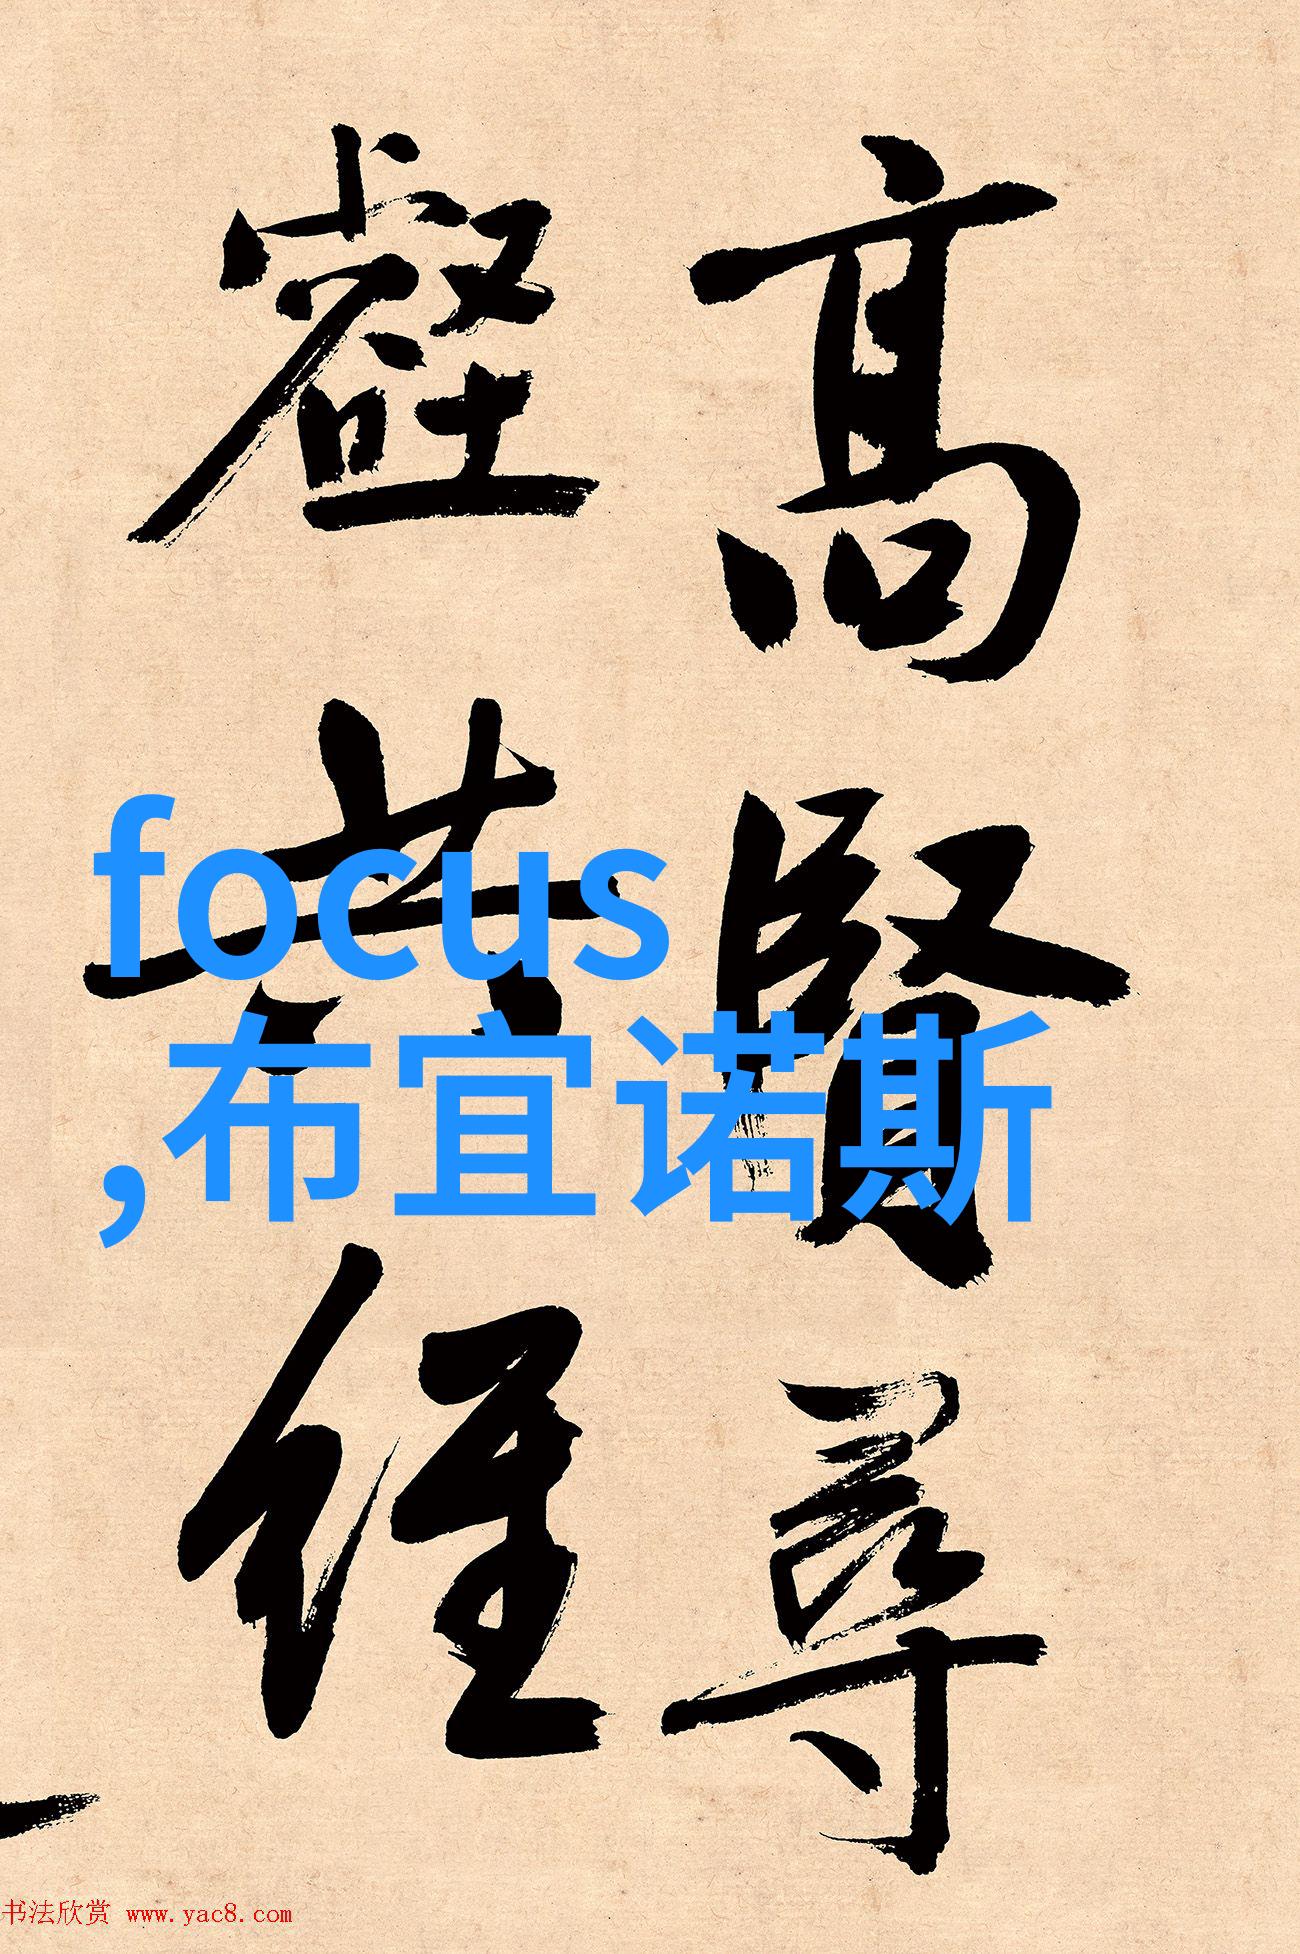 高賢尋
壑共經
focus
,布宜诺斯
书法欣赏 www.yac8.com